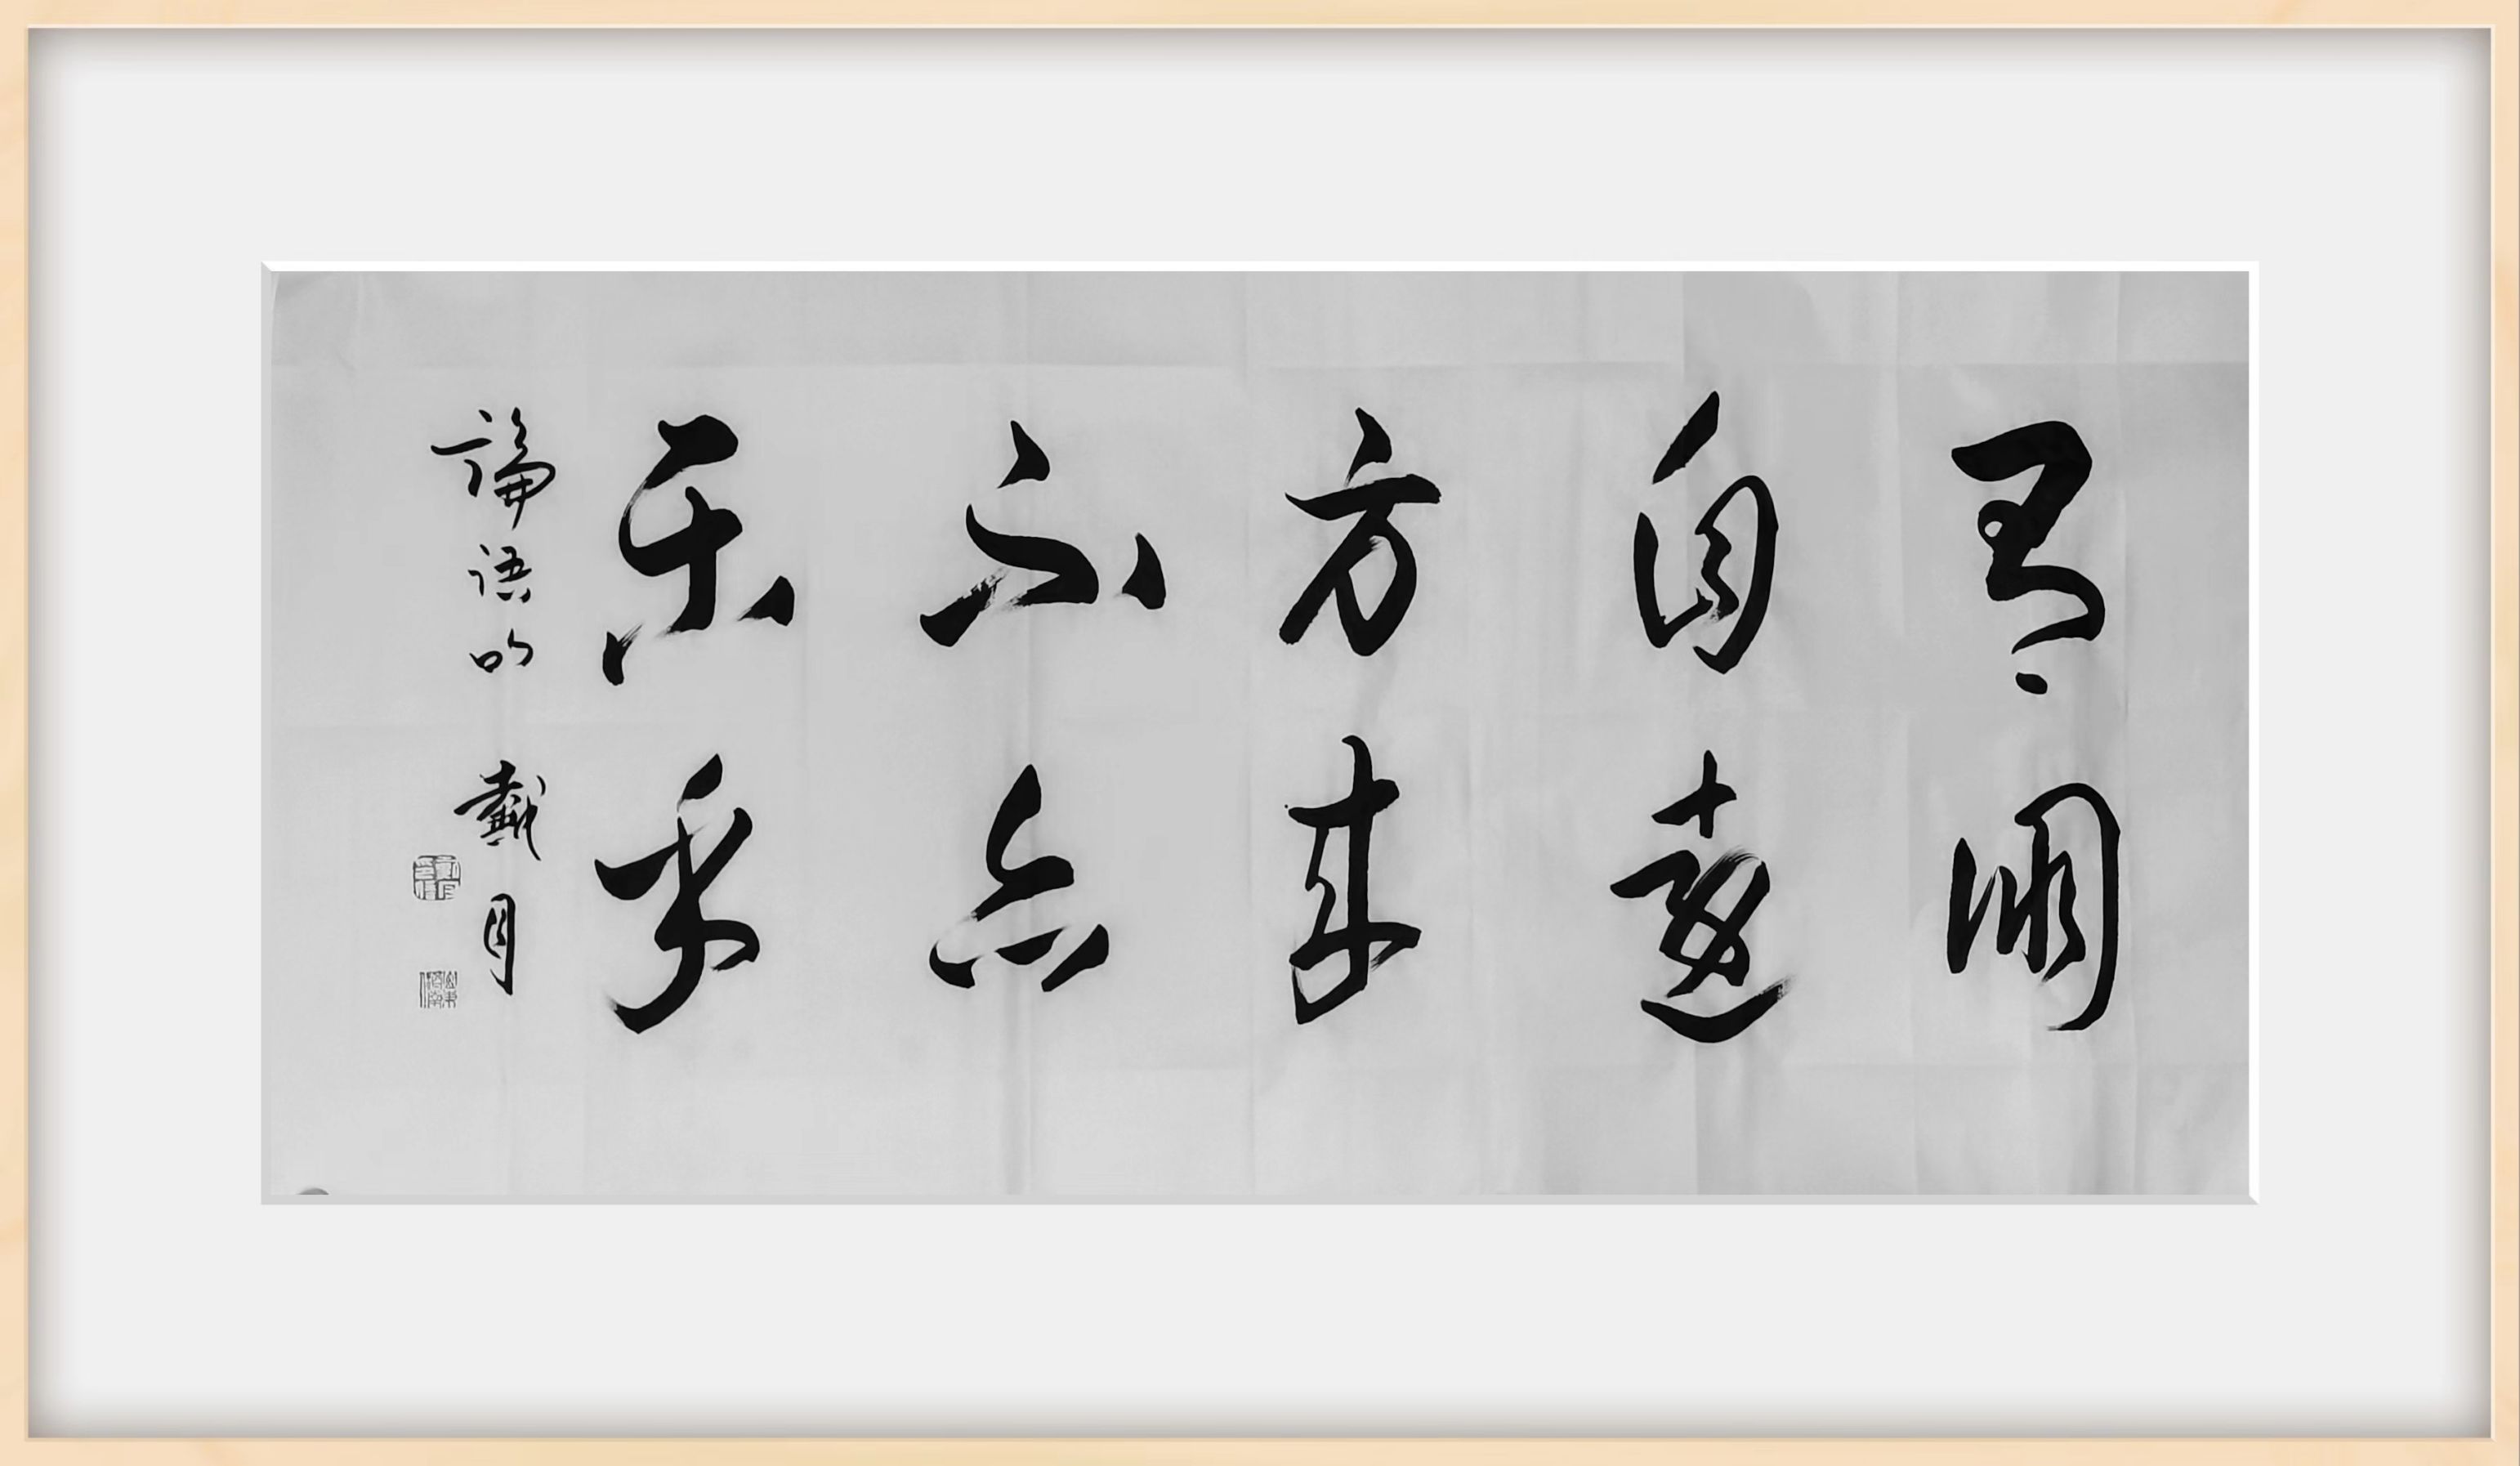 有朋
自遠
方来
不亦
乐乎
論語句 戴月